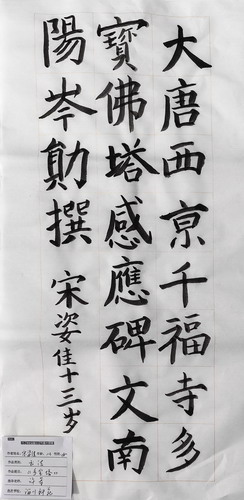 大唐西京千福寺多
寶佛塔感應碑文南
陽岑勛撰 宋姿佳十三岁